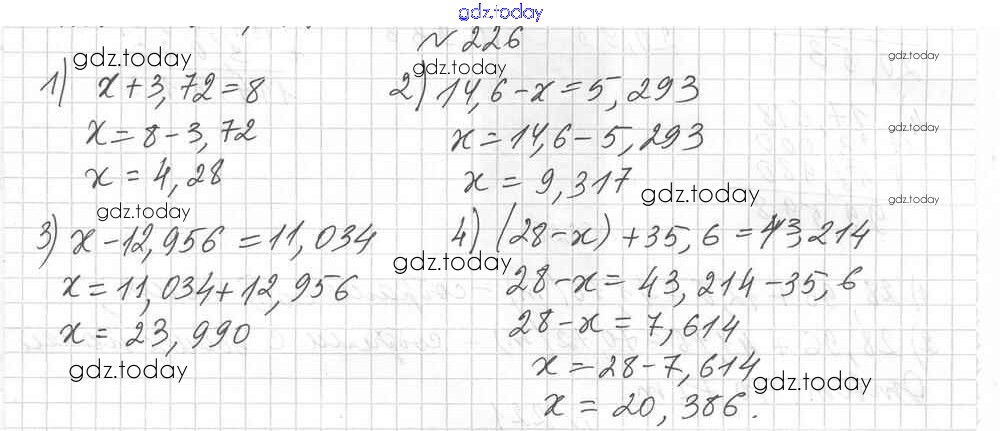 gdz.today
№ 226
gdz.today
gdz.today
gdz.today
1) x+3,72=8
2) 14,6-x=5,293
x=8-3,72
x=14,6-5,293
gdz.today
x=4,28
x=9,317
gdz.today
gdz.today
gdz.today
3) x-12,956=11,034
4) (28-x)+35,6=43,214
gdz.today
x=11,034+12,956
28-x=43,214-35,6
x=23,990
28-x=7,614
gdz.today
x=28-7,614
gdz.today
x=20,386.